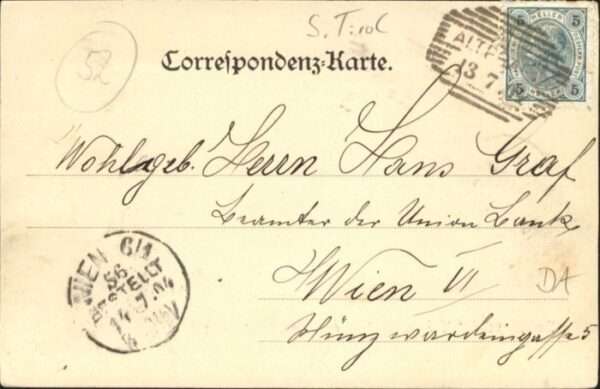 S. Tirol
52
Correspondenz-Karte.
5 HELLER 5
5 5
ALTP
13 7
Wohlgeb. Herrn Hans Graf
Beamter der Union Bank
Wien VI
DA
Münzwardeingasse 5
WIEN 6/1
56
BESTELLT
14.7.04